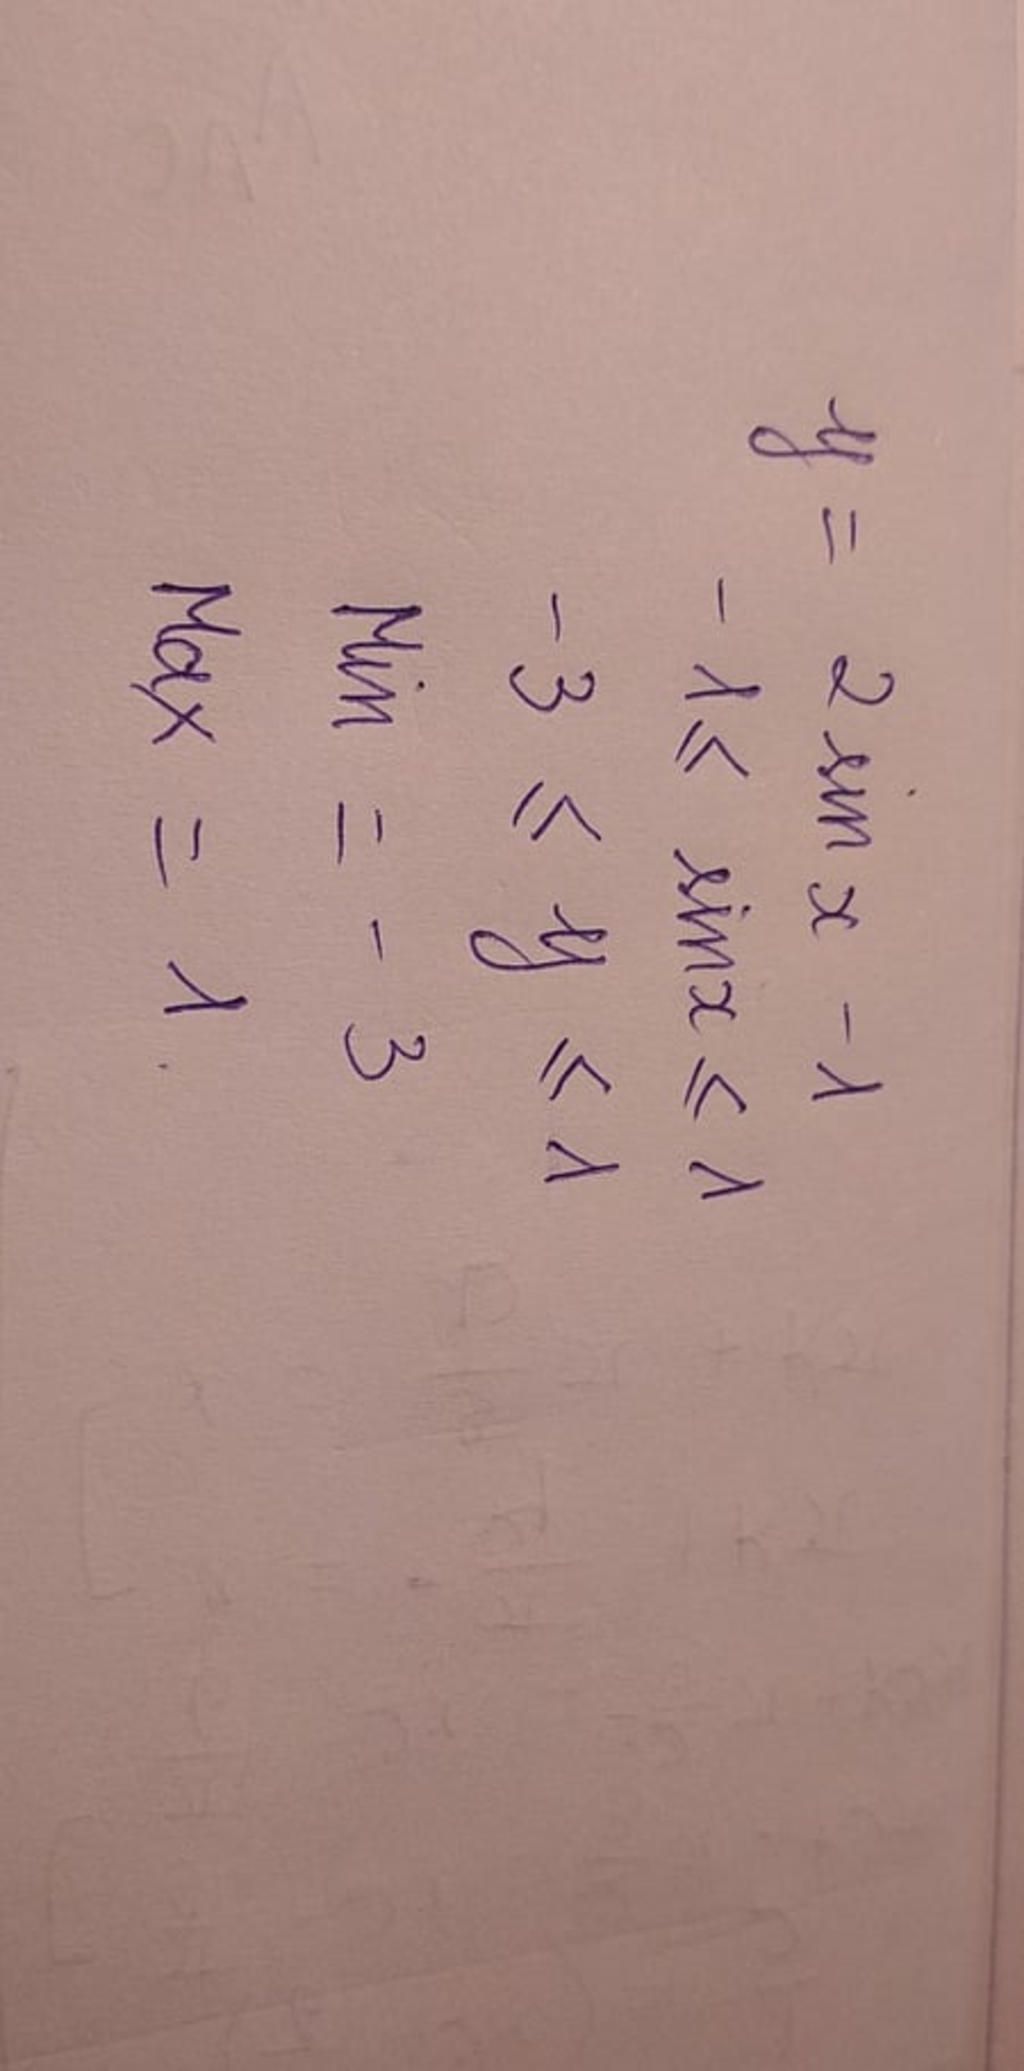 y = 2 sin x - 1
- 1 ⩽ sin x ⩽ 1
- 3 ⩽ y ⩽ 1
Min = - 3
Max = 1